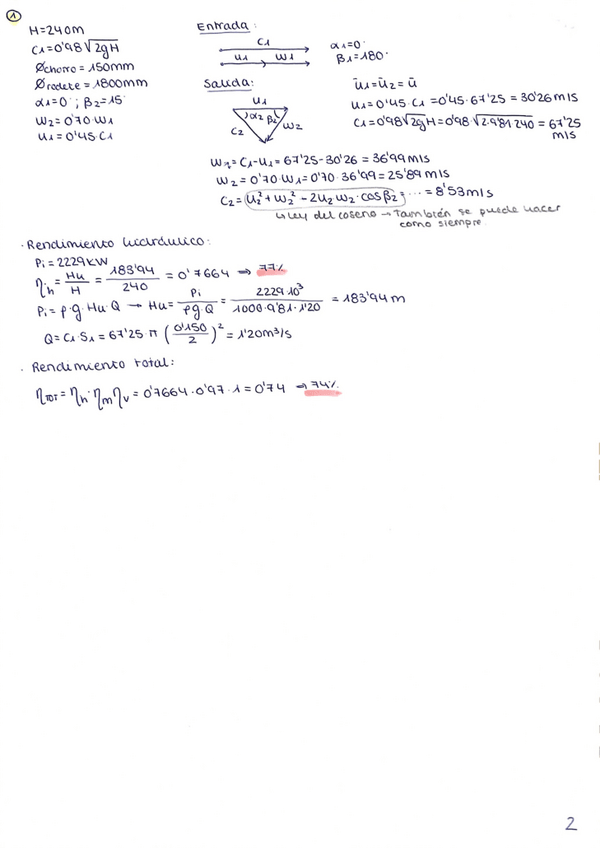 1
H=240m
C1=0'98√2gH
Øchorro = 150mm
Ørodete = 1800mm
α1=0° ; β2=15°
W2=0'70·W1
U1=0'45·C1
Entrada:
C1
U1 W1
α1=0°
β1=180°
Salida:
U1
α2 β2
C2 W2
ū1=ū2=ū
U1=0'45·C1=0'45·67'25=30'26m/s
C1=0'98√2gH=0'98·√2·9'81·240=67'25 m/s
W1=C1-U1=67'25-30'26=36'99m/s
W2=0'70·W1=0'70·36'99=25'89m/s
C2=√U2²+W2²-2U2W2·cosβ2=...=8'53m/s
↳ ley del coseno → También se puede hacer
como siempre.
· Rendimiento hidráulico:
Pi=2229kW
ηh=Hu/H=183'94/240=0'7664 ⇒ 77%
Pi=ρ·g·Hu·Q → Hu=Pi/ρgQ=2229·10³/1000·9'81·1'20=183'94m
Q=C1·S1=67'25·π(0'150/2)²=1'20m³/s
· Rendimiento total:
ηTOT=ηh·ηmηv=0'7664·0'97·1=0'74 ⇒ 74%
2